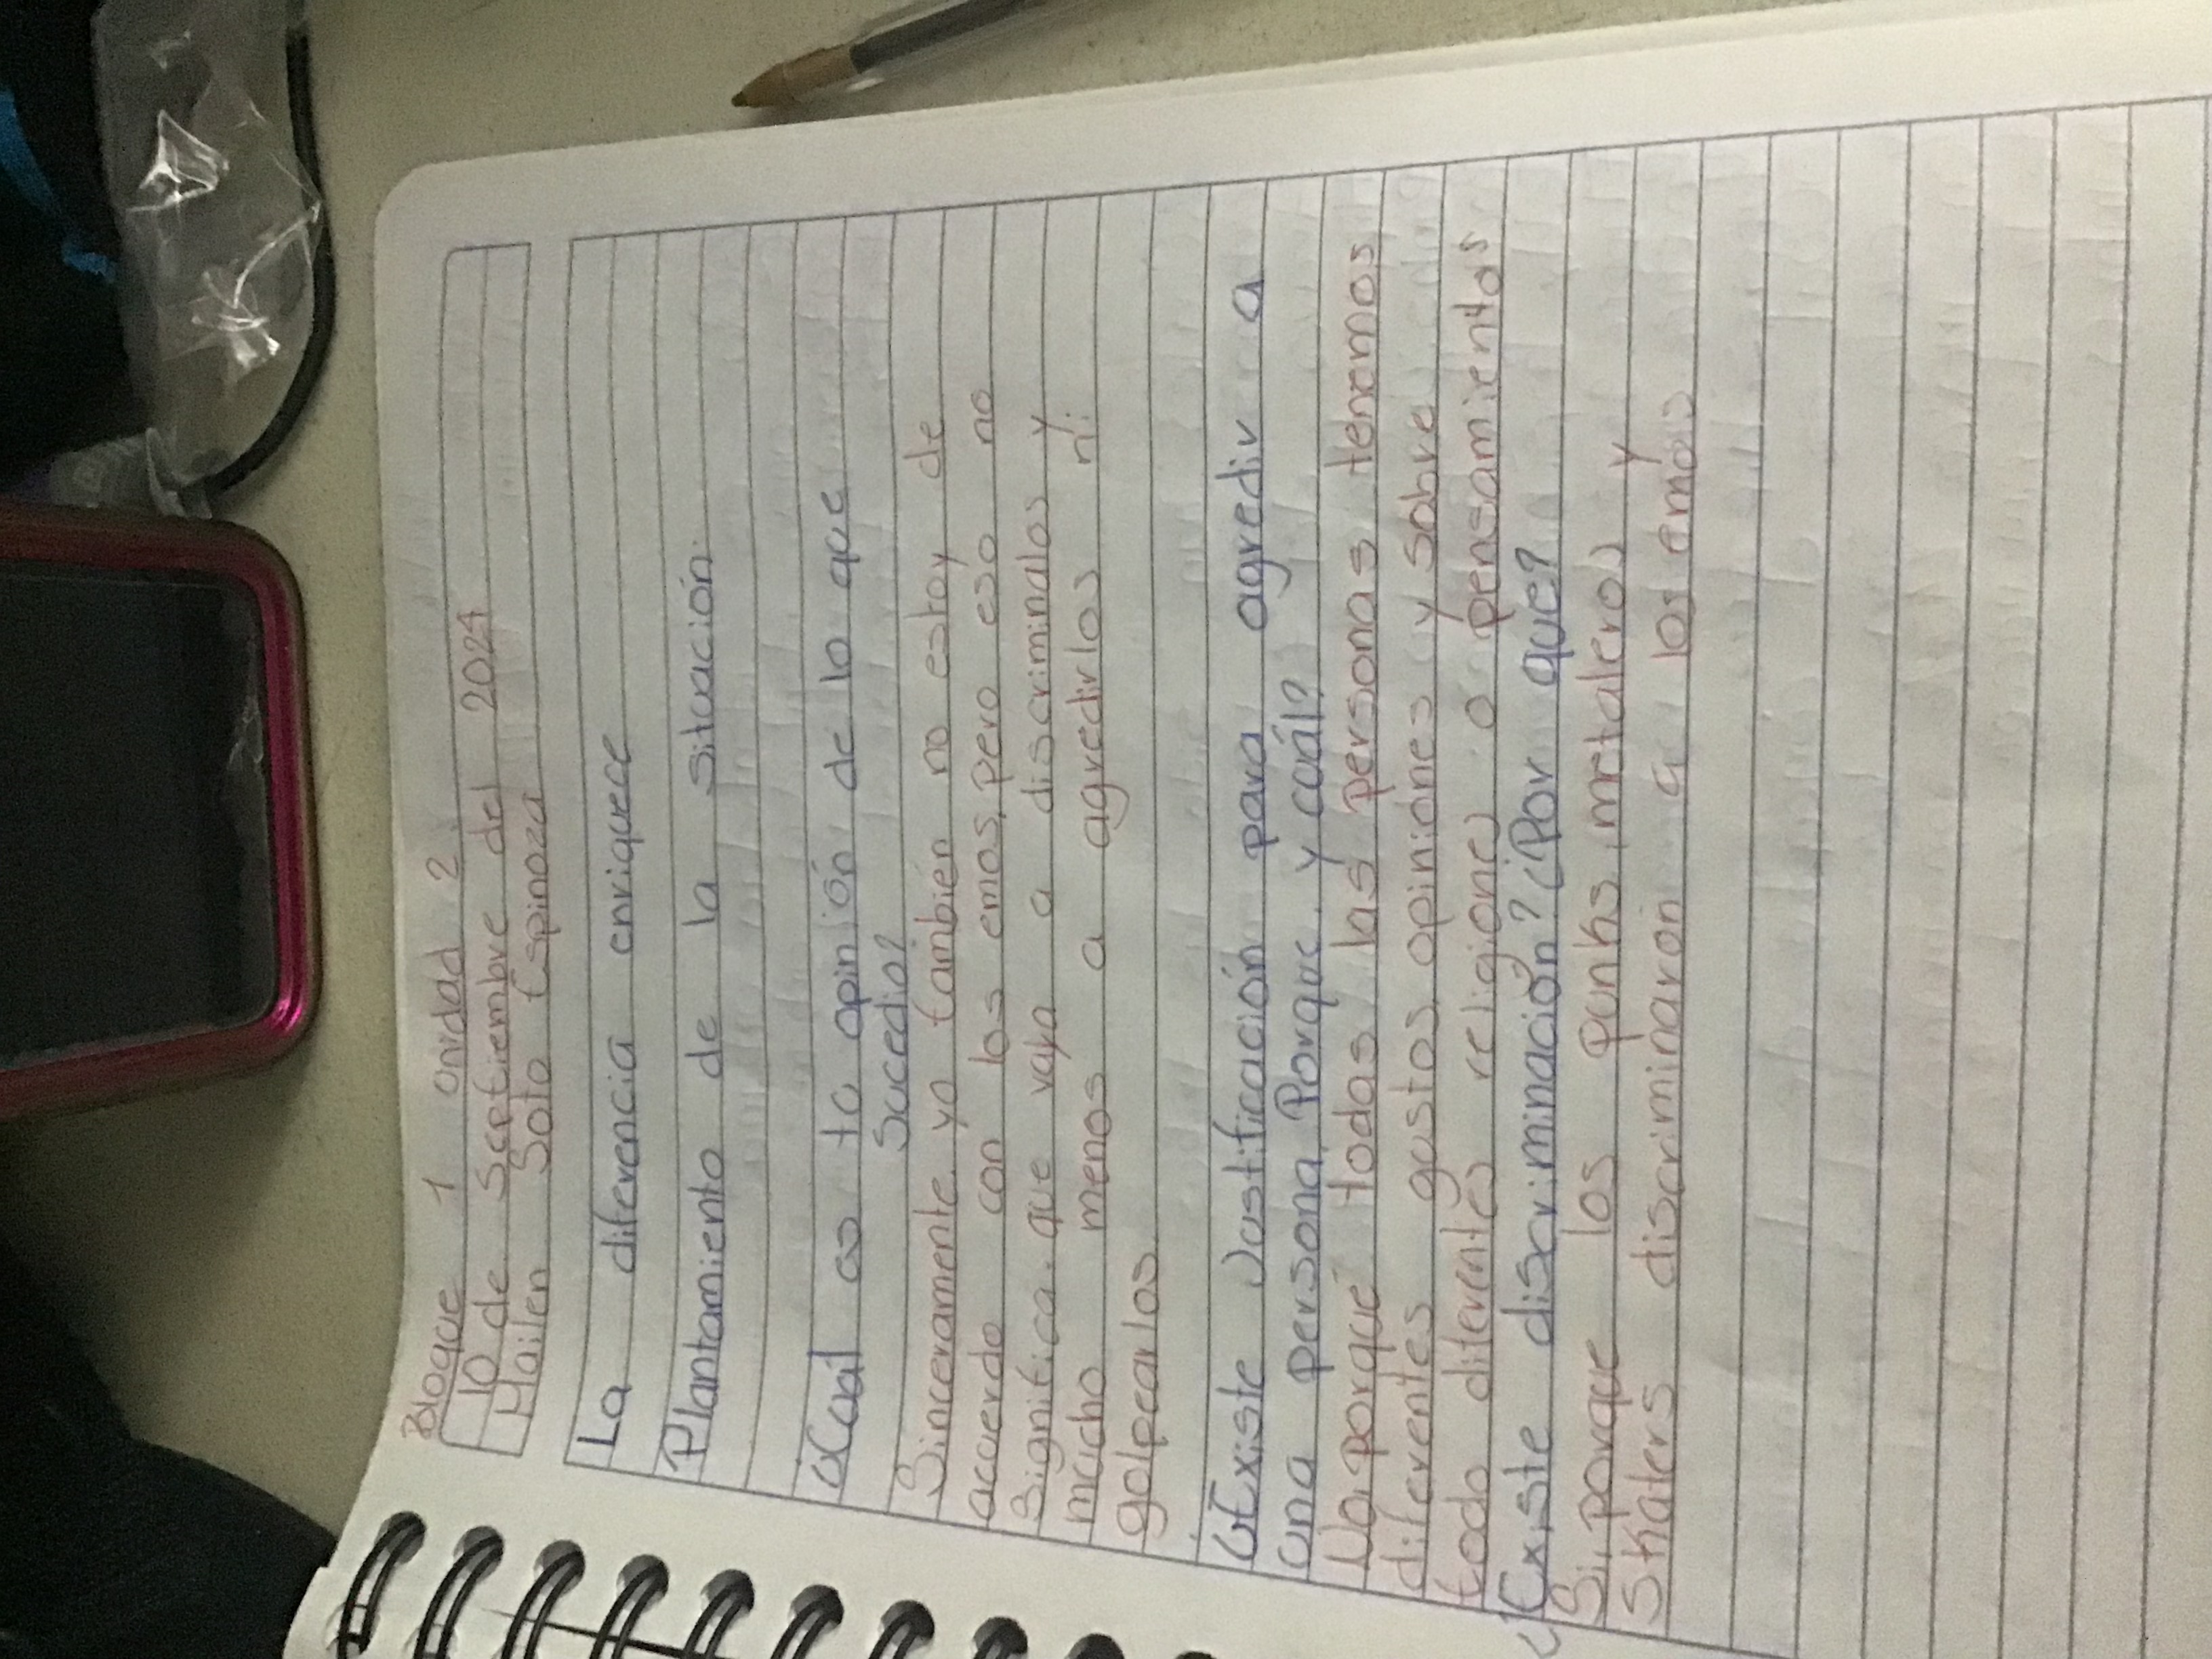 Bloque 1 Unidad 2
10 de Septiembre del 2024
Mailen Soto Espinoza
La diferencia enriquece
Plantamiento de la situación.
¿Cuál es tu opinión de lo que
Sucedio?
Sinceramente yo también no estoy de
acuerdo con los emos, pero eso no
Significa, que vaya a discriminalos y
mucho menos a agredirlos ni
golpearlos
¿Existe Justificación para agredir a
una persona, Porque, y cuál?
No, porque todas las personas tenemos
diferentes gustos, opiniones y sobre
todo diferentes religiones o pensamientos
¿Existe discriminación? ¿Por que?
Si, porque los punks, metaleros y
Skaters discriminaron a los emos